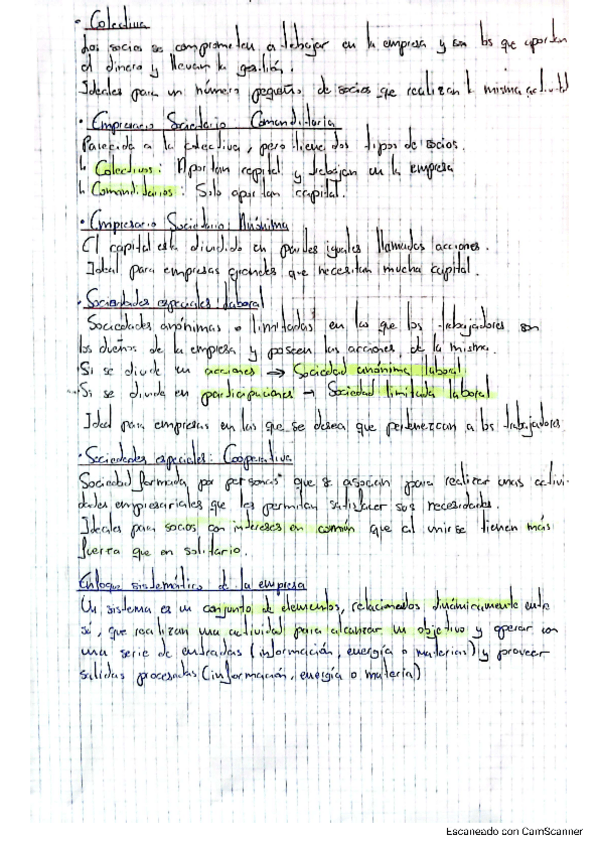 · Colectiva
Los socios se comprometen a trabajar en la empresa y son los que aportan
el dinero y llevan la gestión.
Ideales para un número pequeño de socios que realizan la misma actividad
· Empresario Societario Comanditaria
Parecida a la colectiva, pero tiene dos tipos de socios.
↳ Colectivos: Aportan capital y trabajan en la empresa
↳ Comanditarios: Solo aportan capital.
· Empresario Societario: Anónima
El capital está dividido en partes iguales llamadas acciones.
Ideal para empresas grandes que necesitan mucha capital.
· Sociedades especiales: Laboral
Sociedades anónimas o limitadas en las que los trabajadores son
los dueños de la empresa y poseen las acciones de la misma.
Si se divide en acciones → Sociedad anónima laboral
Si se divide en participaciones → Sociedad limitada laboral
Ideal para empresas en las que se desea que pertenezcan a los trabajadores
· Sociedades especiales: Cooperativa
Sociedad formada por personas que se asocian para realizar unas activi-
dades empresariales que les permitan satisfacer sus necesidades.
Ideales para socios con intereses en común que al unirse tienen más
fuerza que en solitario.
Enfoque sistemático de la empresa
Un sistema es un conjunto de elementos, relacionados dinámicamente entre
sí, que realizan una actividad para alcanzar un objetivo y operar con
una serie de entradas (información, energía o materias) y proveer
salidas procesadas (información, energía o materia)
Escaneado con CamScanner